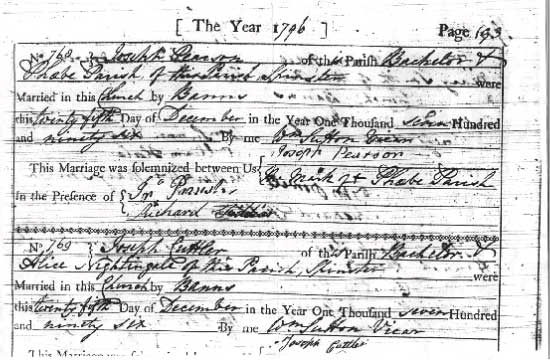 [ The Year 1796 ] Page 193
No 768 } Joseph Pearson of this Parish Bachelor &
Phœbe Parish of this Parish Spinster were
Married in this Church by Banns
this twenty fifth Day of December in the Year One Thousand seven Hundred
and ninety six By me Wm Sutton Vicar
This Marriage was solemnized between Us { Joseph Pearson
the Mark of + Phœbe Parish
In the Presence of {
Richard
No 769 } Joseph Cuttler of this Parish Bachelor &
Alice Nightingale of this Parish, Spinster were
Married in this Church by Banns
this twenty fifth Day of December in the Year One Thousand seven Hundred
and ninety six By me Wm Sutton Vicar
Joseph Cutler
This Marriage was